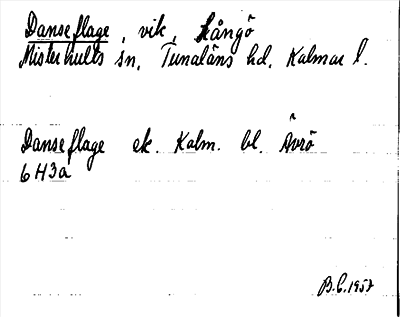 Danseflage, vik, Långö
Misterhults sn, Tunaläns hd, Kalmar l.
Danseflage ek. Kalm. bl. Ävrö
6H3a
B.C. 1957